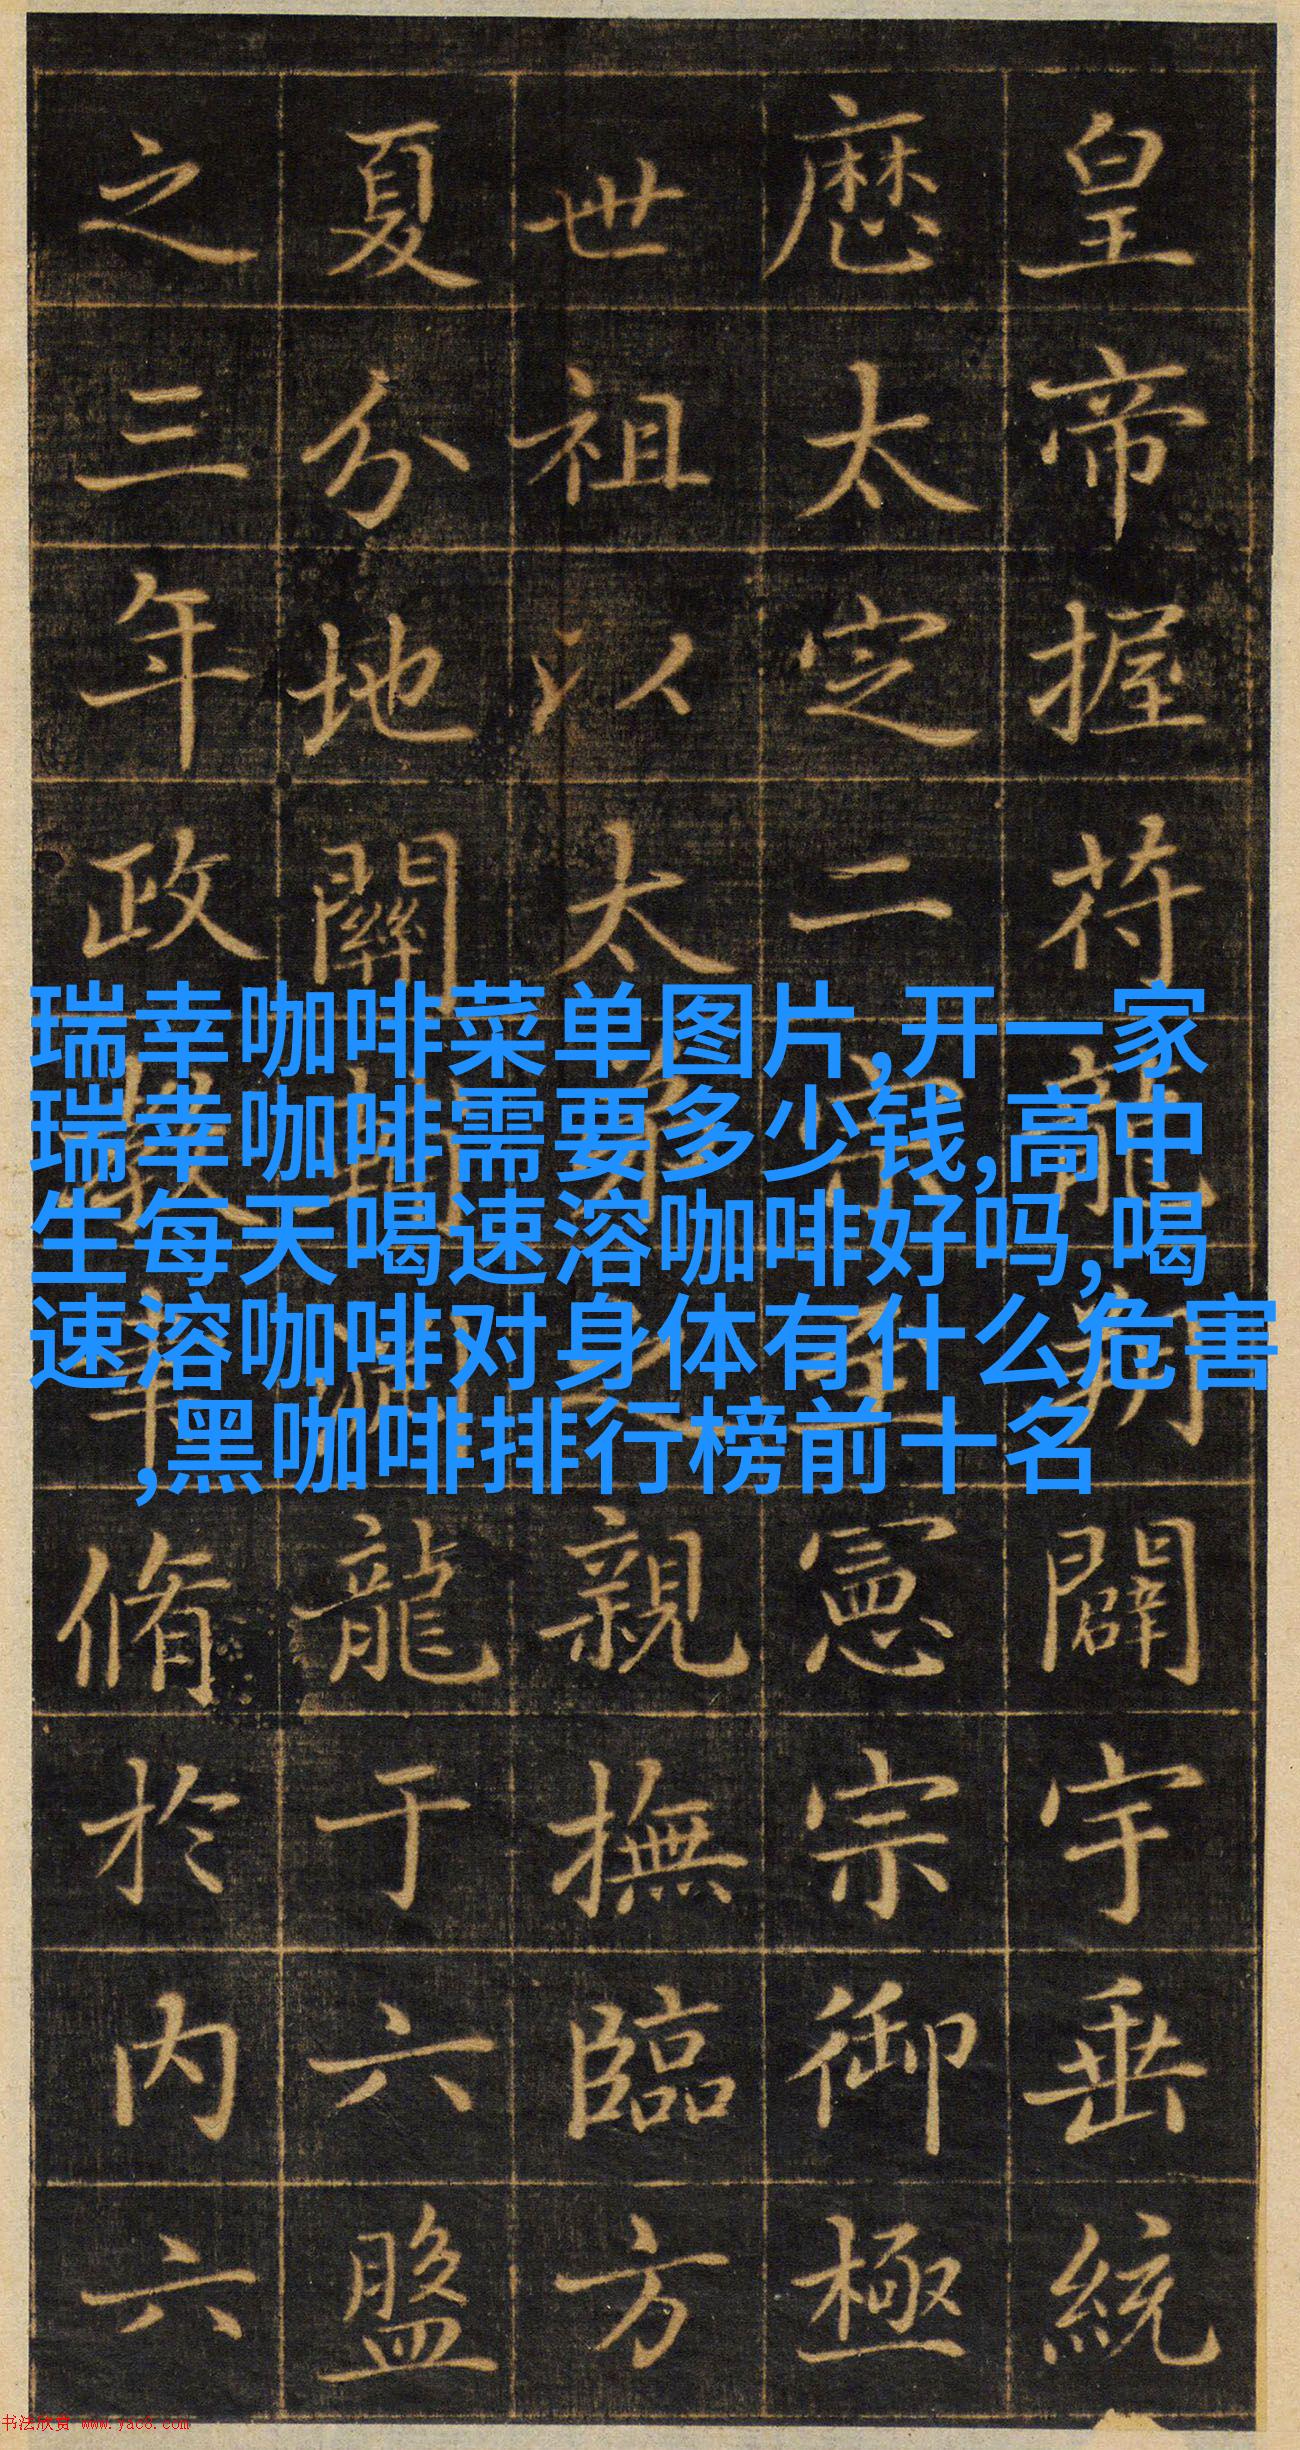 皇帝握苻龍朔闢宇垂統
歷太定二宗至憲宗御極
世祖以太弟之親撫臨方
夏分地關龍于六盤
之三年政聿脩於内六
瑞幸咖啡菜单图片,开一家
瑞幸咖啡需要多少钱,高中
生每天喝速溶咖啡好吗,喝
速溶咖啡对身体有什么危害
,黑咖啡排行榜前十名
书法欣赏 www.yac8.com